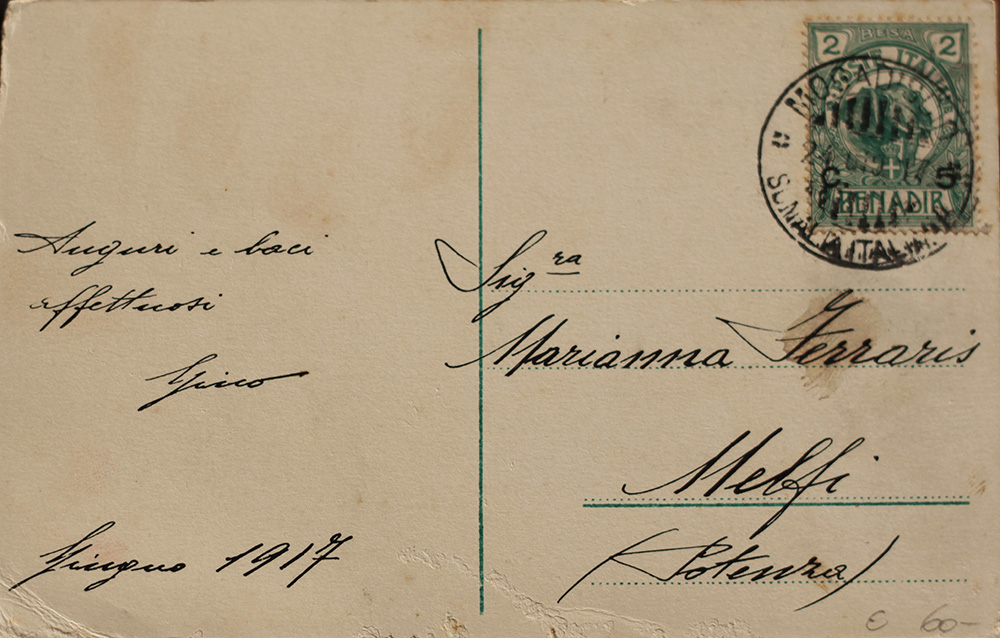 2 BESA 2
POSTE ITALIANE
C. 5
BENADIR
MOGADISCIO
SOMALIA ITALIANA
Auguri e baci
affettuosi
Gino
Giugno 1917
Sig.ra
Marianna Ferraris
Melfi
(Potenza)
€ 60-